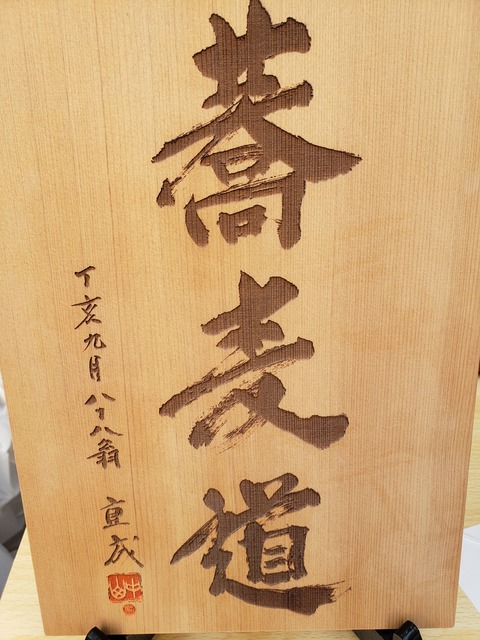 蕎麦道
丁亥九月八十八翁